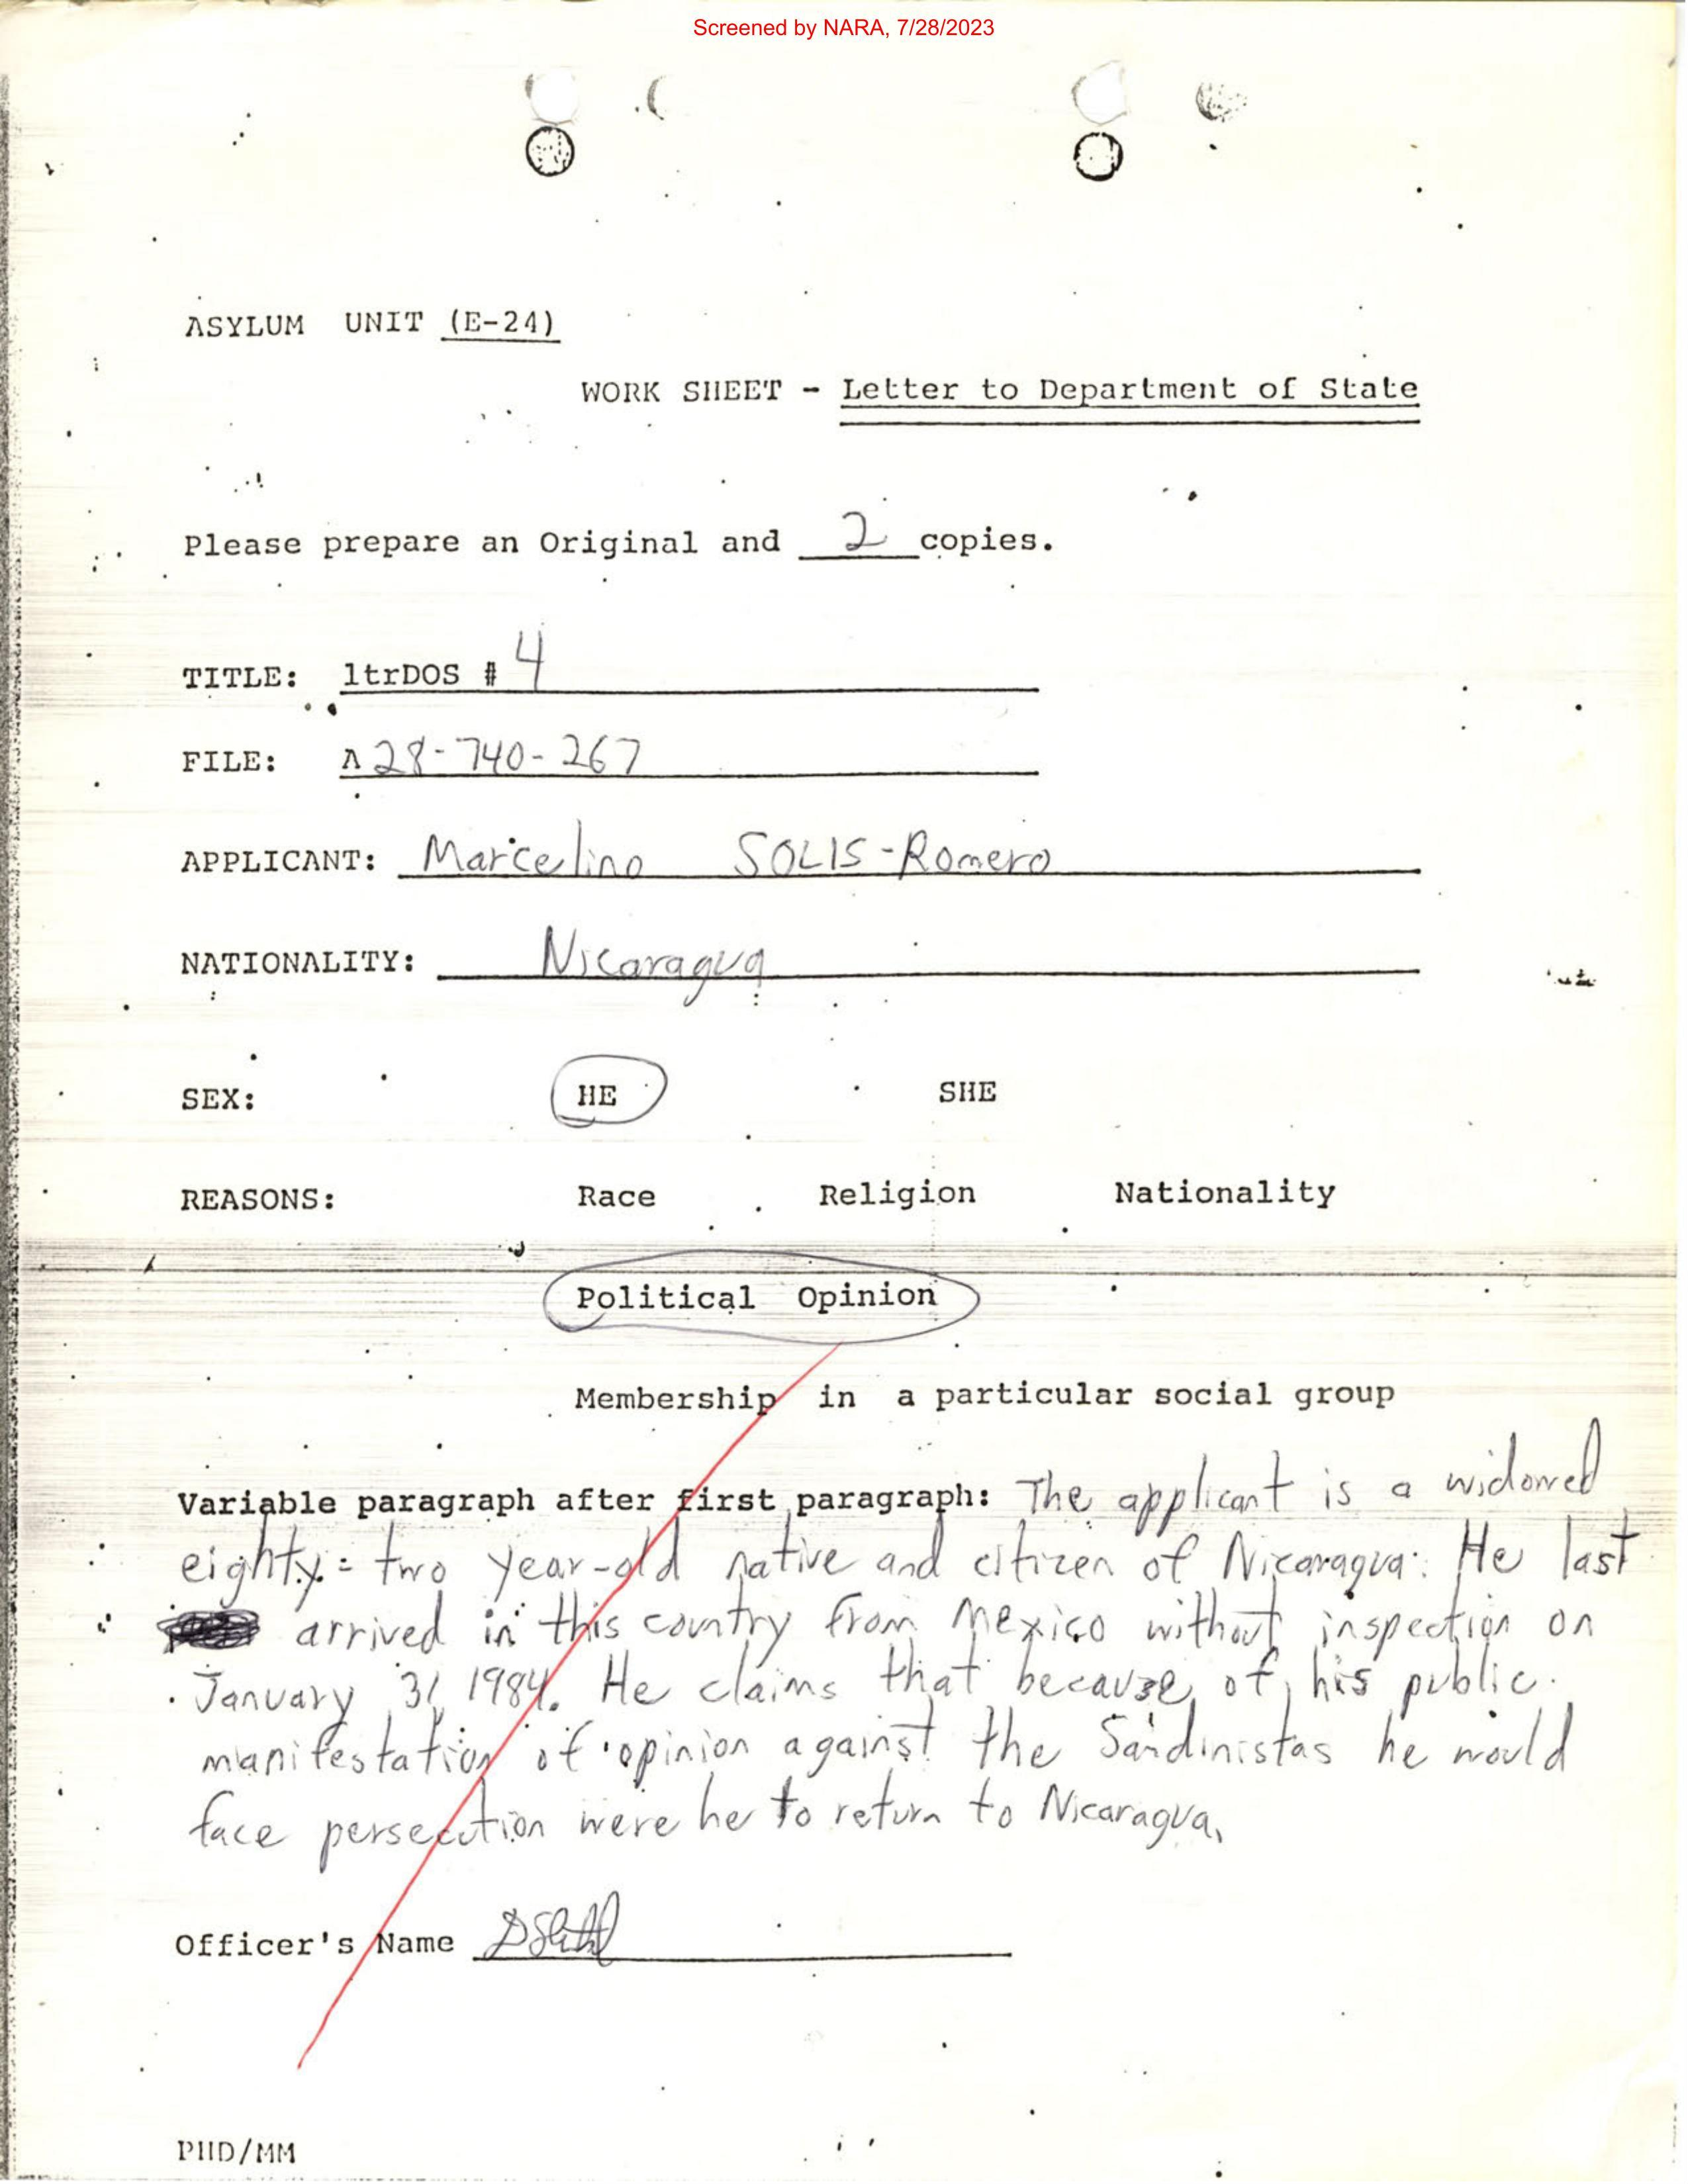 Screened by NARA, 7/28/2023
ASYLUM UNIT (E-24)
WORK SHEET - Letter to Department of State
Please prepare an Original and 2 copies.
TITLE: ltrDOS # 4
FILE: A 28-740-267
APPLICANT: Marcelino SOLIS-Romero
NATIONALITY: Nicaragua
SEX: HE SHE
REASONS: Race Religion Nationality
Political Opinion
Membership in a particular social group
Variable paragraph after first paragraph: The applicant is a widowed
eighty-two year-old native and citizen of Nicaragua. He last
arrived in this country from Mexico without inspection on
January 31 1984. He claims that because of his public
manifestation of opinion against the Sandinistas he would
face persecution were he to return to Nicaragua.
Officer's Name
PHD/MM